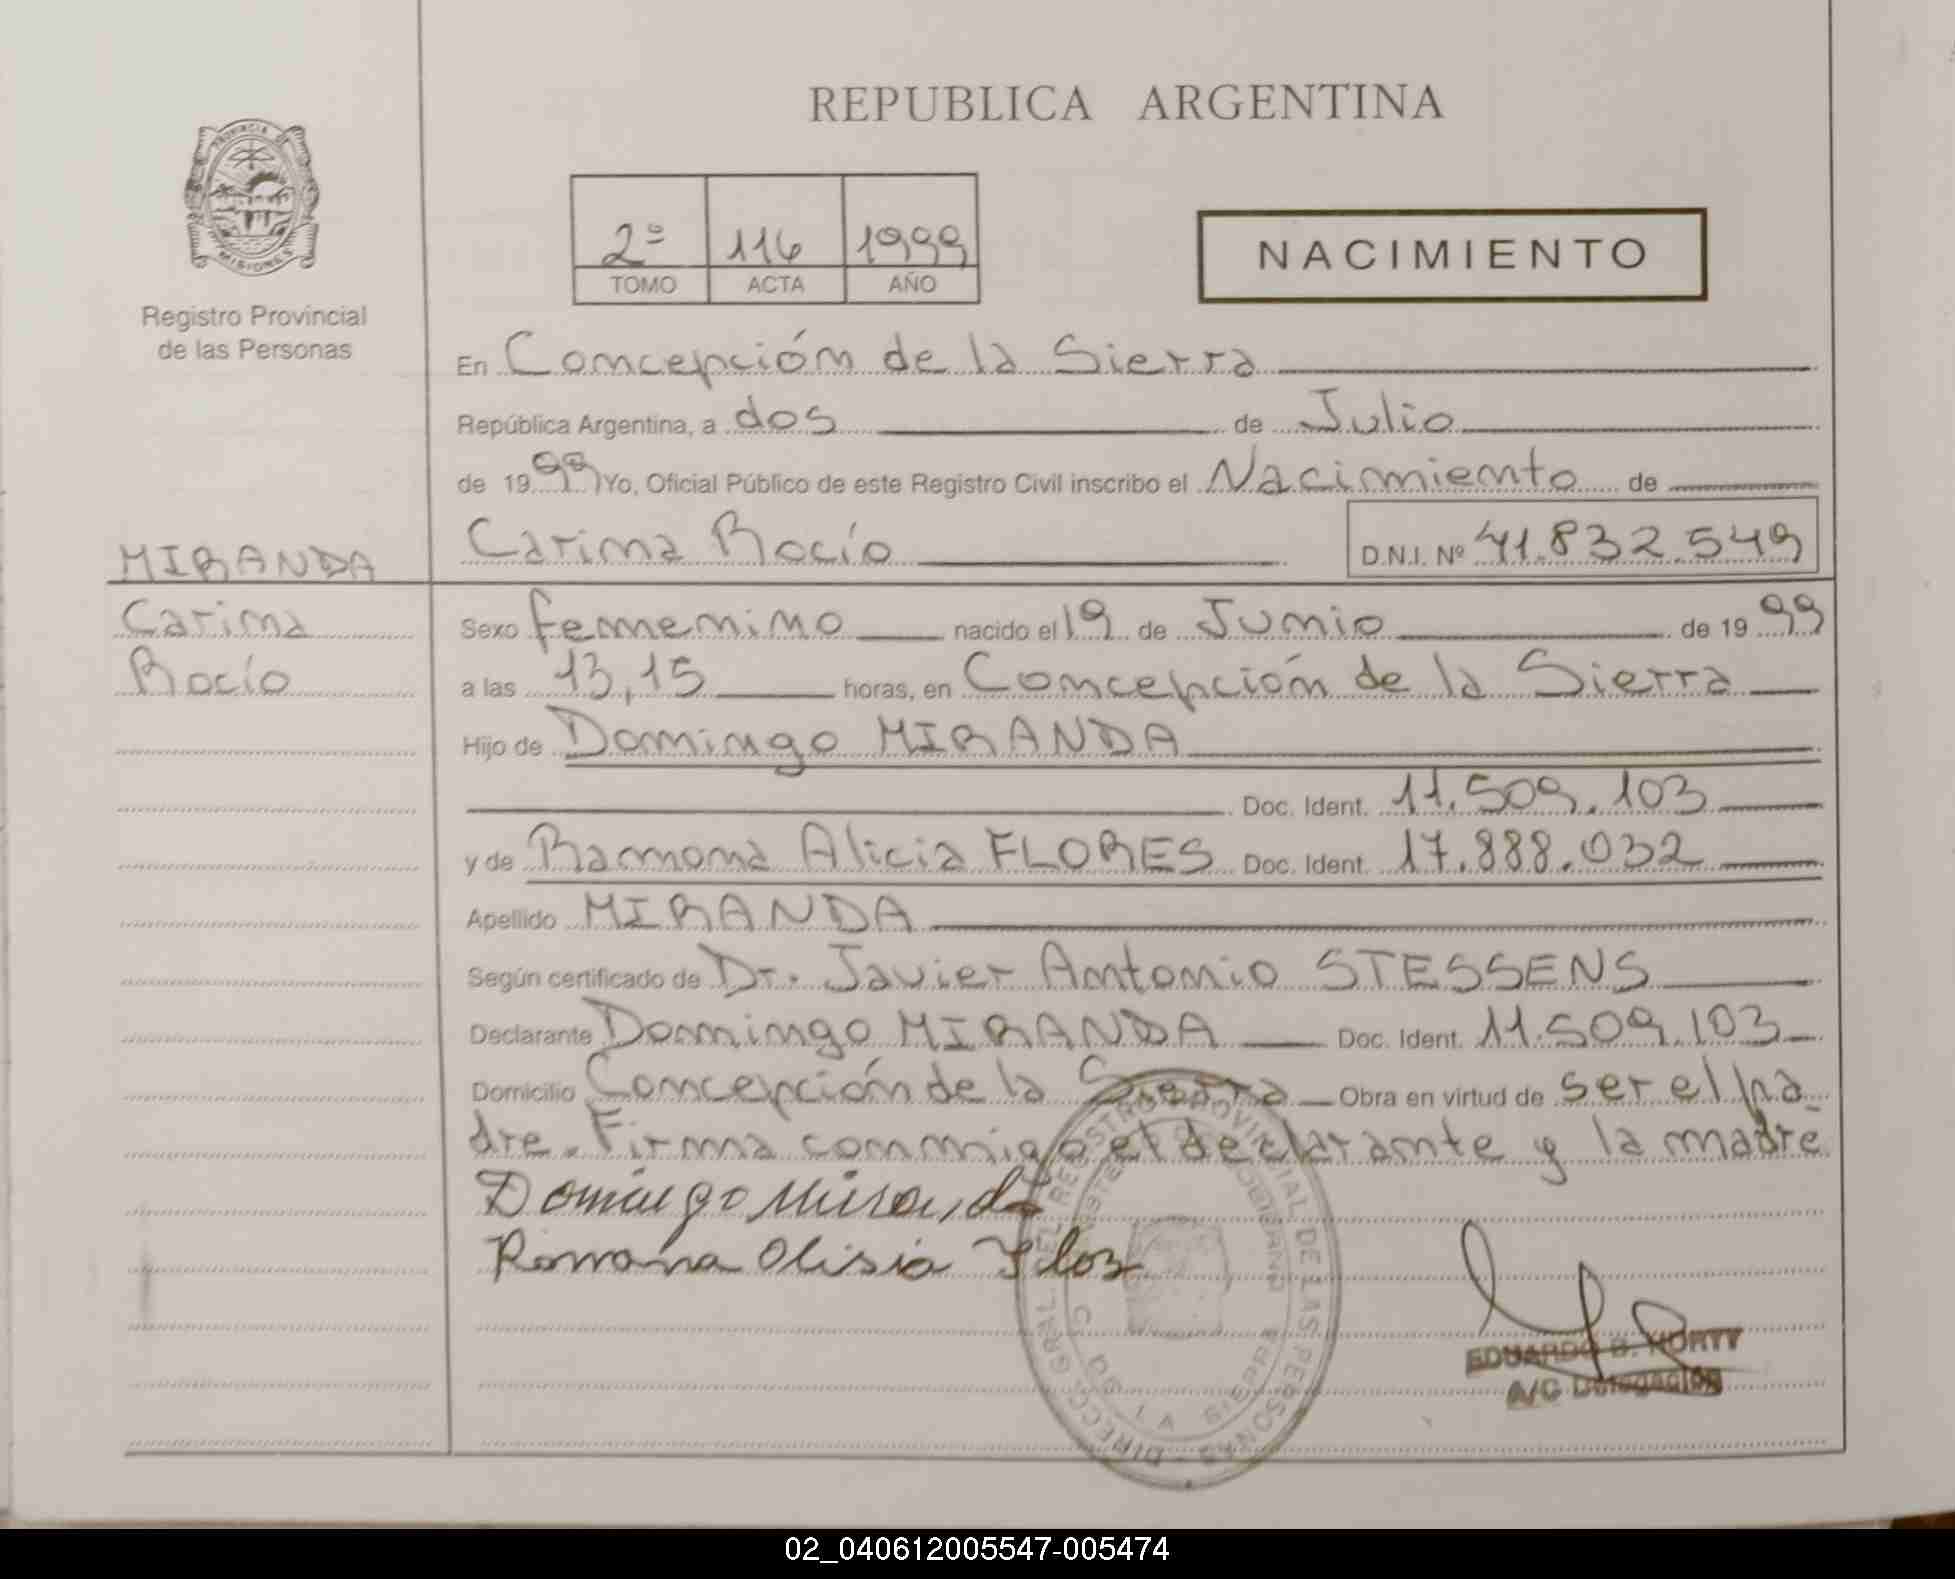 REPUBLICA ARGENTINA
PROVINCIA DE MISIONES
Registro Provincial
de las Personas
2º 116 1999
TOMO ACTA AÑO
NACIMIENTO
En Concepción de la Sierra
República Argentina, a dos de Julio
de 1999 Yo, Oficial Público de este Registro Civil inscribo el Nacimiento de
MIRANDA
Carina Rocío
Carina Rocío D.N.I. Nº 41.832.549
Sexo femenino nacido el 19 de Junio de 1999
a las 13,15 horas, en Concepción de la Sierra
Hijo de Domingo MIRANDA
Doc. Ident. 11.509.103
y de Ramona Alicia FLORES Doc. Ident. 17.888.032
Apellido MIRANDA
Según certificado de Dr. Javier Antonio STESSENS
Declarante Domingo MIRANDA Doc. Ident. 11.509.103
Domicilio Concepción de la Sierra Obra en virtud de ser el pa-
dre. Firma conmigo el declarante y la madre
Domingo Miranda
Ramona Olisia Flos
DIRECC. GRAL. DEL REGISTRO PROVINCIAL DE LAS PERSONAS
GOBIERNO
C. DE LA SIERRA
EDUARDO B. HORTT
A/C Delegación
02_040612005547-005474